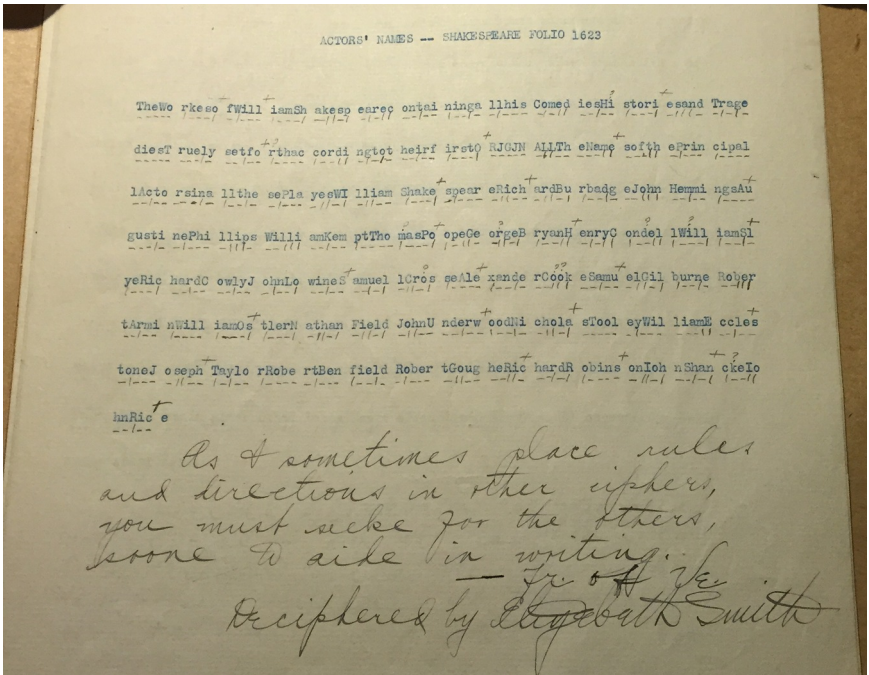 ACTORS' NAMES -- SHAKESPEARE FOLIO 1623
TheWo rkeso fWill iamSh akesp earec ontai ninga llhis Comed iesHi stori esand Trage
diesT ruely setfo rthac cordi ngtot heirf irstO RJGJN ALLTh eName softh ePrin cipal
lActo rsina llthe sePla yesWI lliam Shake spear eRich ardBu rbadg eJohn Hemmi ngsAu
gusti nePhi llips Willi amKem ptTho masPo opeGe orgeB ryanH enryC ondel lWill iamSl
yeRic hardC owlyJ ohnLo wineS amuel lCros seAle xande rCook eSamu elGil burne Rober
tArmi nWill iamOs tlerN athan Field JohnU nderw oodNi chola sTool eyWil liamE ccles
toneJ oseph Taylo rRobe rtBen field Rober tGoug heRic hardR obins onIoh nShan ckeIo
hnRic e
As I sometimes place rules
and directions in other ciphers,
you must seeke for the others,
soone to aide in writing.
— Fr. of Ve.
Deciphered by Elizebeth Smith